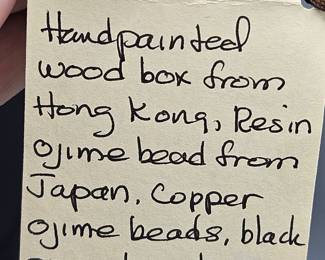 Handpainted
wood box from
Hong Kong, Resin
ojime bead from
Japan. Copper
ojime beads, black